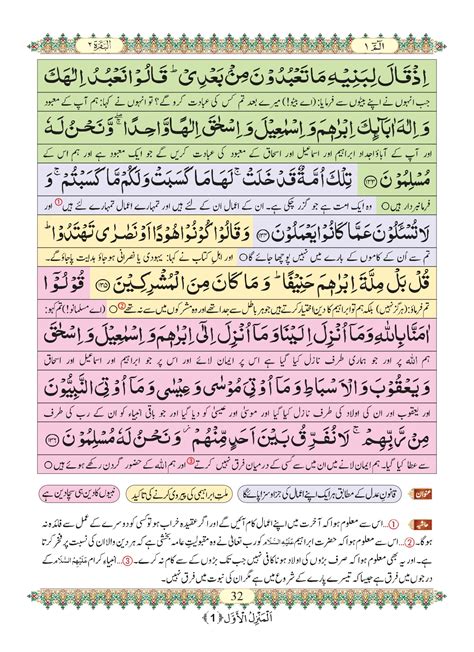 الٓمّٓ ١
اَلْبَقَرَة ٢
اِذْ قَالَ لِبَنِیْهِ مَا تَعْبُدُوْنَ مِنْۢ بَعْدِیْ ؕ قَالُوْا نَعْبُدُ اِلٰهَكَ
جب انہوں نے اپنے بیٹوں سے فرمایا: (اے بیٹو!) میرے بعد تم کس کی عبادت کرو گے؟ تو انہوں نے کہا: ہم آپ کے
وَ اِلٰهَ اٰبَآىِٕكَ اِبْرٰهٖمَ وَ اِسْمٰعِیْلَ وَ اِسْحٰقَ اِلٰهًا وَّاحِدًا ۚۖ وَّ نَحْنُ لَهٗ
اور آپ کے آباؤ اجداد ابراہیم اور اسماعیل اور اسحاق کے معبود کی عبادت کریں گے جو ایک معبود ہے اور ہم اس کے
مُسْلِمُوْنَ ۝۱۳۳ تِلْكَ اُمَّةٌ قَدْ خَلَتْ ۚ لَهَا مَا كَسَبَتْ وَ لَكُمْ مَّا كَسَبْتُمْ ۚ
فرمانبردار ہیں ○ وہ ایک امت ہے جو گزر چکی ہے۔ ان کے اعمال ان کے لئے ہیں اور تمہارے اعمال تمہارے لئے ہیں ① اور
لَا تُسْـَٔلُوْنَ عَمَّا كَانُوْا یَعْمَلُوْنَ ۝۱۳۴ وَ قَالُوْا كُوْنُوْا هُوْدًا اَوْ نَصٰرٰى تَهْتَدُوْا ؕ
تم سے ان کے کاموں کے بارے میں نہیں پوچھا جائے گا ○ اور اہل کتاب نے کہا: یہودی یا نصرانی ہوجاؤ ہدایت پاجاؤ گے۔
قُلْ بَلْ مِلَّةَ اِبْرٰهٖمَ حَنِیْفًا ؕ وَ مَا كَانَ مِنَ الْمُشْرِكِیْنَ ۝۱۳۵ قُوْلُوْۤا
تم فرماؤ: (ہرگز نہیں) بلکہ ہم تو ابراہیم کا دین اختیار کرتے ہیں جو ہر باطل سے جدا تھے اور وہ مشرکوں میں سے نہ تھے ② (اے مسلمانو!) تم کہو:
اٰمَنَّا بِاللّٰهِ وَ مَاۤ اُنْزِلَ اِلَیْنَا وَ مَاۤ اُنْزِلَ اِلٰۤى اِبْرٰهٖمَ وَ اِسْمٰعِیْلَ وَ اِسْحٰقَ
ہم اللہ پر اور جو ہماری طرف نازل کیا گیا ہے اس پر ایمان لائے اور اس پر جو ابراہیم اور اسماعیل اور اسحاق
وَ یَعْقُوْبَ وَ الْاَسْبَاطِ وَ مَاۤ اُوْتِیَ مُوْسٰى وَ عِیْسٰى وَ مَاۤ اُوْتِیَ النَّبِیُّوْنَ
اور یعقوب اور ان کی اولاد کی طرف نازل کیا گیا اور موسیٰ اور عیسیٰ کو دیا گیا اور جو باقی انبیاء کو ان کے رب کی طرف
مِنْ رَّبِّهِمْ ۚ لَا نُفَرِّقُ بَیْنَ اَحَدٍ مِّنْهُمْ ۖ٘ وَ نَحْنُ لَهٗ مُسْلِمُوْنَ ۝۱۳۶
سے عطا کیا گیا۔ ہم ایمان لانے میں ان میں سے کسی کے درمیان فرق نہیں کرتے ③ اور ہم اللہ کے حضور گردن رکھے ہوئے ہیں ○
عنوان قانون عدل کے مطابق ہر ایک اپنے اعمال کی جزا و سزا پائے گا ملتِ ابراہیمی کی پیروی کرنے کی تاکید نبیوں کا دین ہی سچا دین ہے
حاشیہ ①... اس سے معلوم ہوا کہ آخرت میں اپنے اعمال کام آئیں گے اور اگر عقیدہ خراب ہو تو کسی کو دوسرے کے عمل سے فائدہ نہ
ہوگا۔ ②... اس سے معلوم ہوا کہ حضرت ابراہیم عَلَیْهِ السَّلَام کو رب تعالیٰ نے وہ مقبولیتِ عامہ بخشی ہے کہ ہر دین والا ان کی نسبت پر فخر کرتا
ہے۔ اور یہ بھی معلوم ہوا کہ صرف بڑوں کی اولاد ہونا کافی نہیں جب تک بڑوں کے سے کام نہ کرے۔ ③... انبیاء کرام عَلَیْهِمُ السَّلَام کے مراتب
میں فرق ہے جیسا کہ تیسرے پارے کے شروع میں ہے مگر ان کی نبوت میں فرق نہیں۔
32
اَلْمَنْزِلُ الْاَوَّل (1)